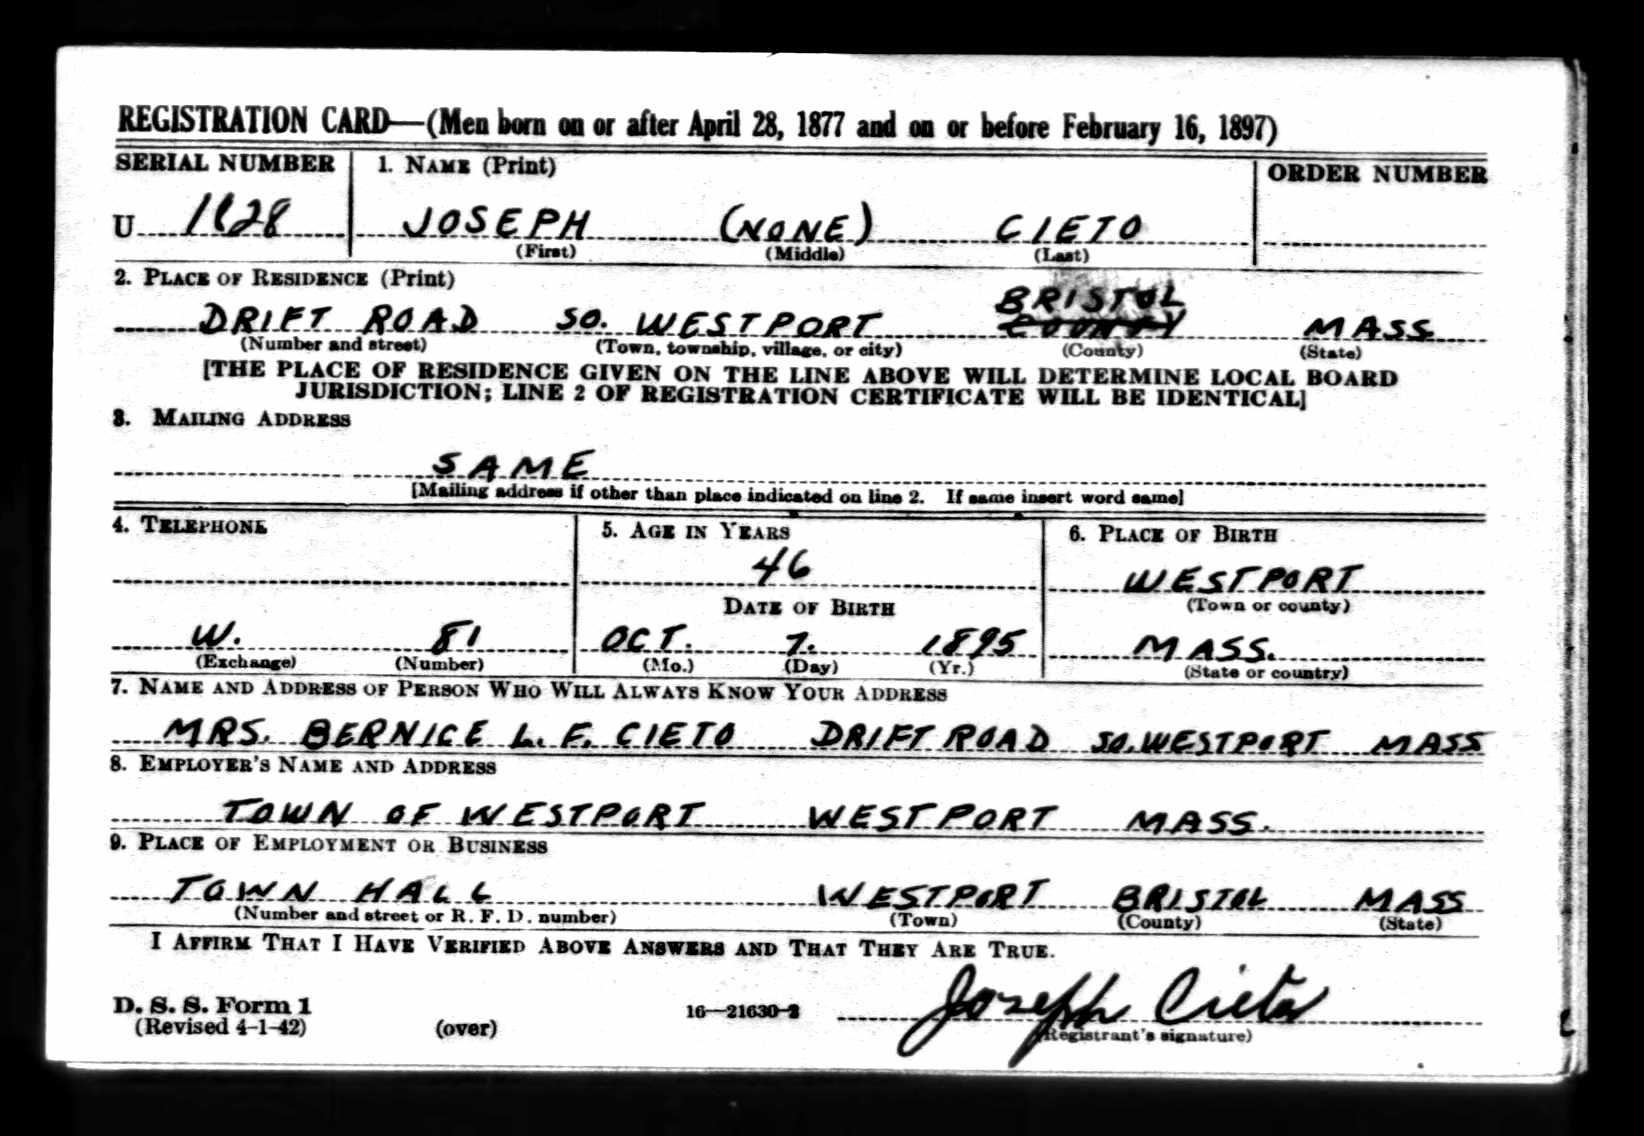 REGISTRATION CARD—(Men born on or after April 28, 1877 and on or before February 16, 1897)
SERIAL NUMBER 1. NAME (Print) ORDER NUMBER
U 1628 JOSEPH (NONE) CIETO
(First) (Middle) (Last)
2. PLACE OF RESIDENCE (Print)
BRISTOL
DRIFT ROAD SO. WESTPORT COUNTY MASS
(Number and street) (Town, township, village, or city) (County) (State)
[THE PLACE OF RESIDENCE GIVEN ON THE LINE ABOVE WILL DETERMINE LOCAL BOARD
JURISDICTION; LINE 2 OF REGISTRATION CERTIFICATE WILL BE IDENTICAL]
3. MAILING ADDRESS
SAME
[Mailing address if other than place indicated on line 2. If same insert word same]
4. TELEPHONE 5. AGE IN YEARS 6. PLACE OF BIRTH
46 WESTPORT
DATE OF BIRTH (Town or county)
W. 81 OCT. 7. 1895 MASS.
(Exchange) (Number) (Mo.) (Day) (Yr.) (State or country)
7. NAME AND ADDRESS OF PERSON WHO WILL ALWAYS KNOW YOUR ADDRESS
MRS. BERNICE L. F. CIETO DRIFT ROAD SO. WESTPORT MASS
8. EMPLOYER'S NAME AND ADDRESS
TOWN OF WESTPORT WESTPORT MASS.
9. PLACE OF EMPLOYMENT OR BUSINESS
TOWN HALL WESTPORT BRISTOL MASS
(Number and street or R. F. D. number) (Town) (County) (State)
I AFFIRM THAT I HAVE VERIFIED ABOVE ANSWERS AND THAT THEY ARE TRUE.
D. S. S. Form 1 16—21630-2 Joseph Cieto
(Revised 4-1-42) (over) (Registrant's signature)